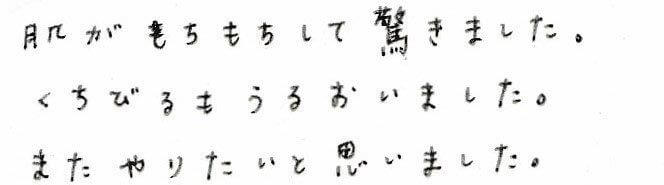 肌がもちもちして驚きました。
くちびるもうるおいました。
またやりたいと思いました。